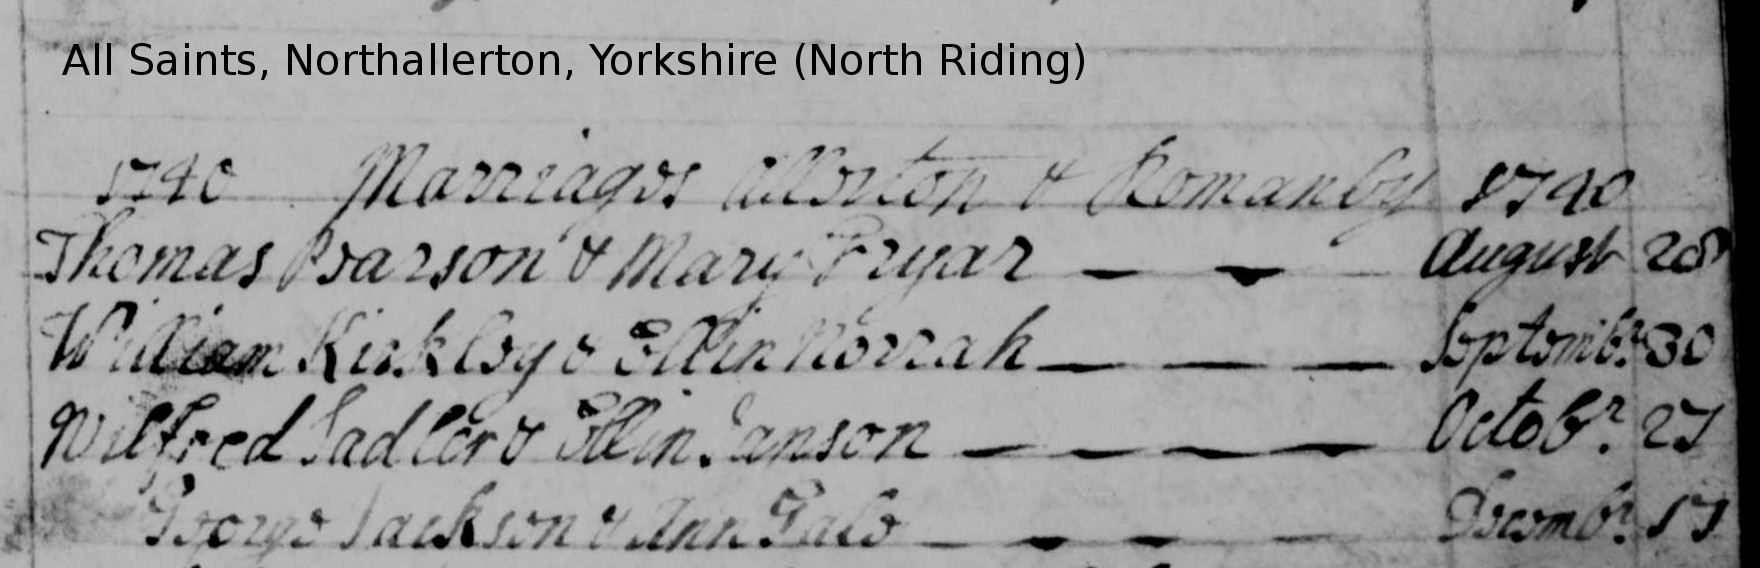 All Saints, Northallerton, Yorkshire (North Riding)
1740 Marriages Allerton & Romanby 1740
Thomas Pearson & Mary Pryar August 28
William Kirkley & Ellin Norrah Septembr. 30
Wilfred Sadler & Ellin Janson Octobr. 27
George Jackson & Ann Gale Decembr. 17